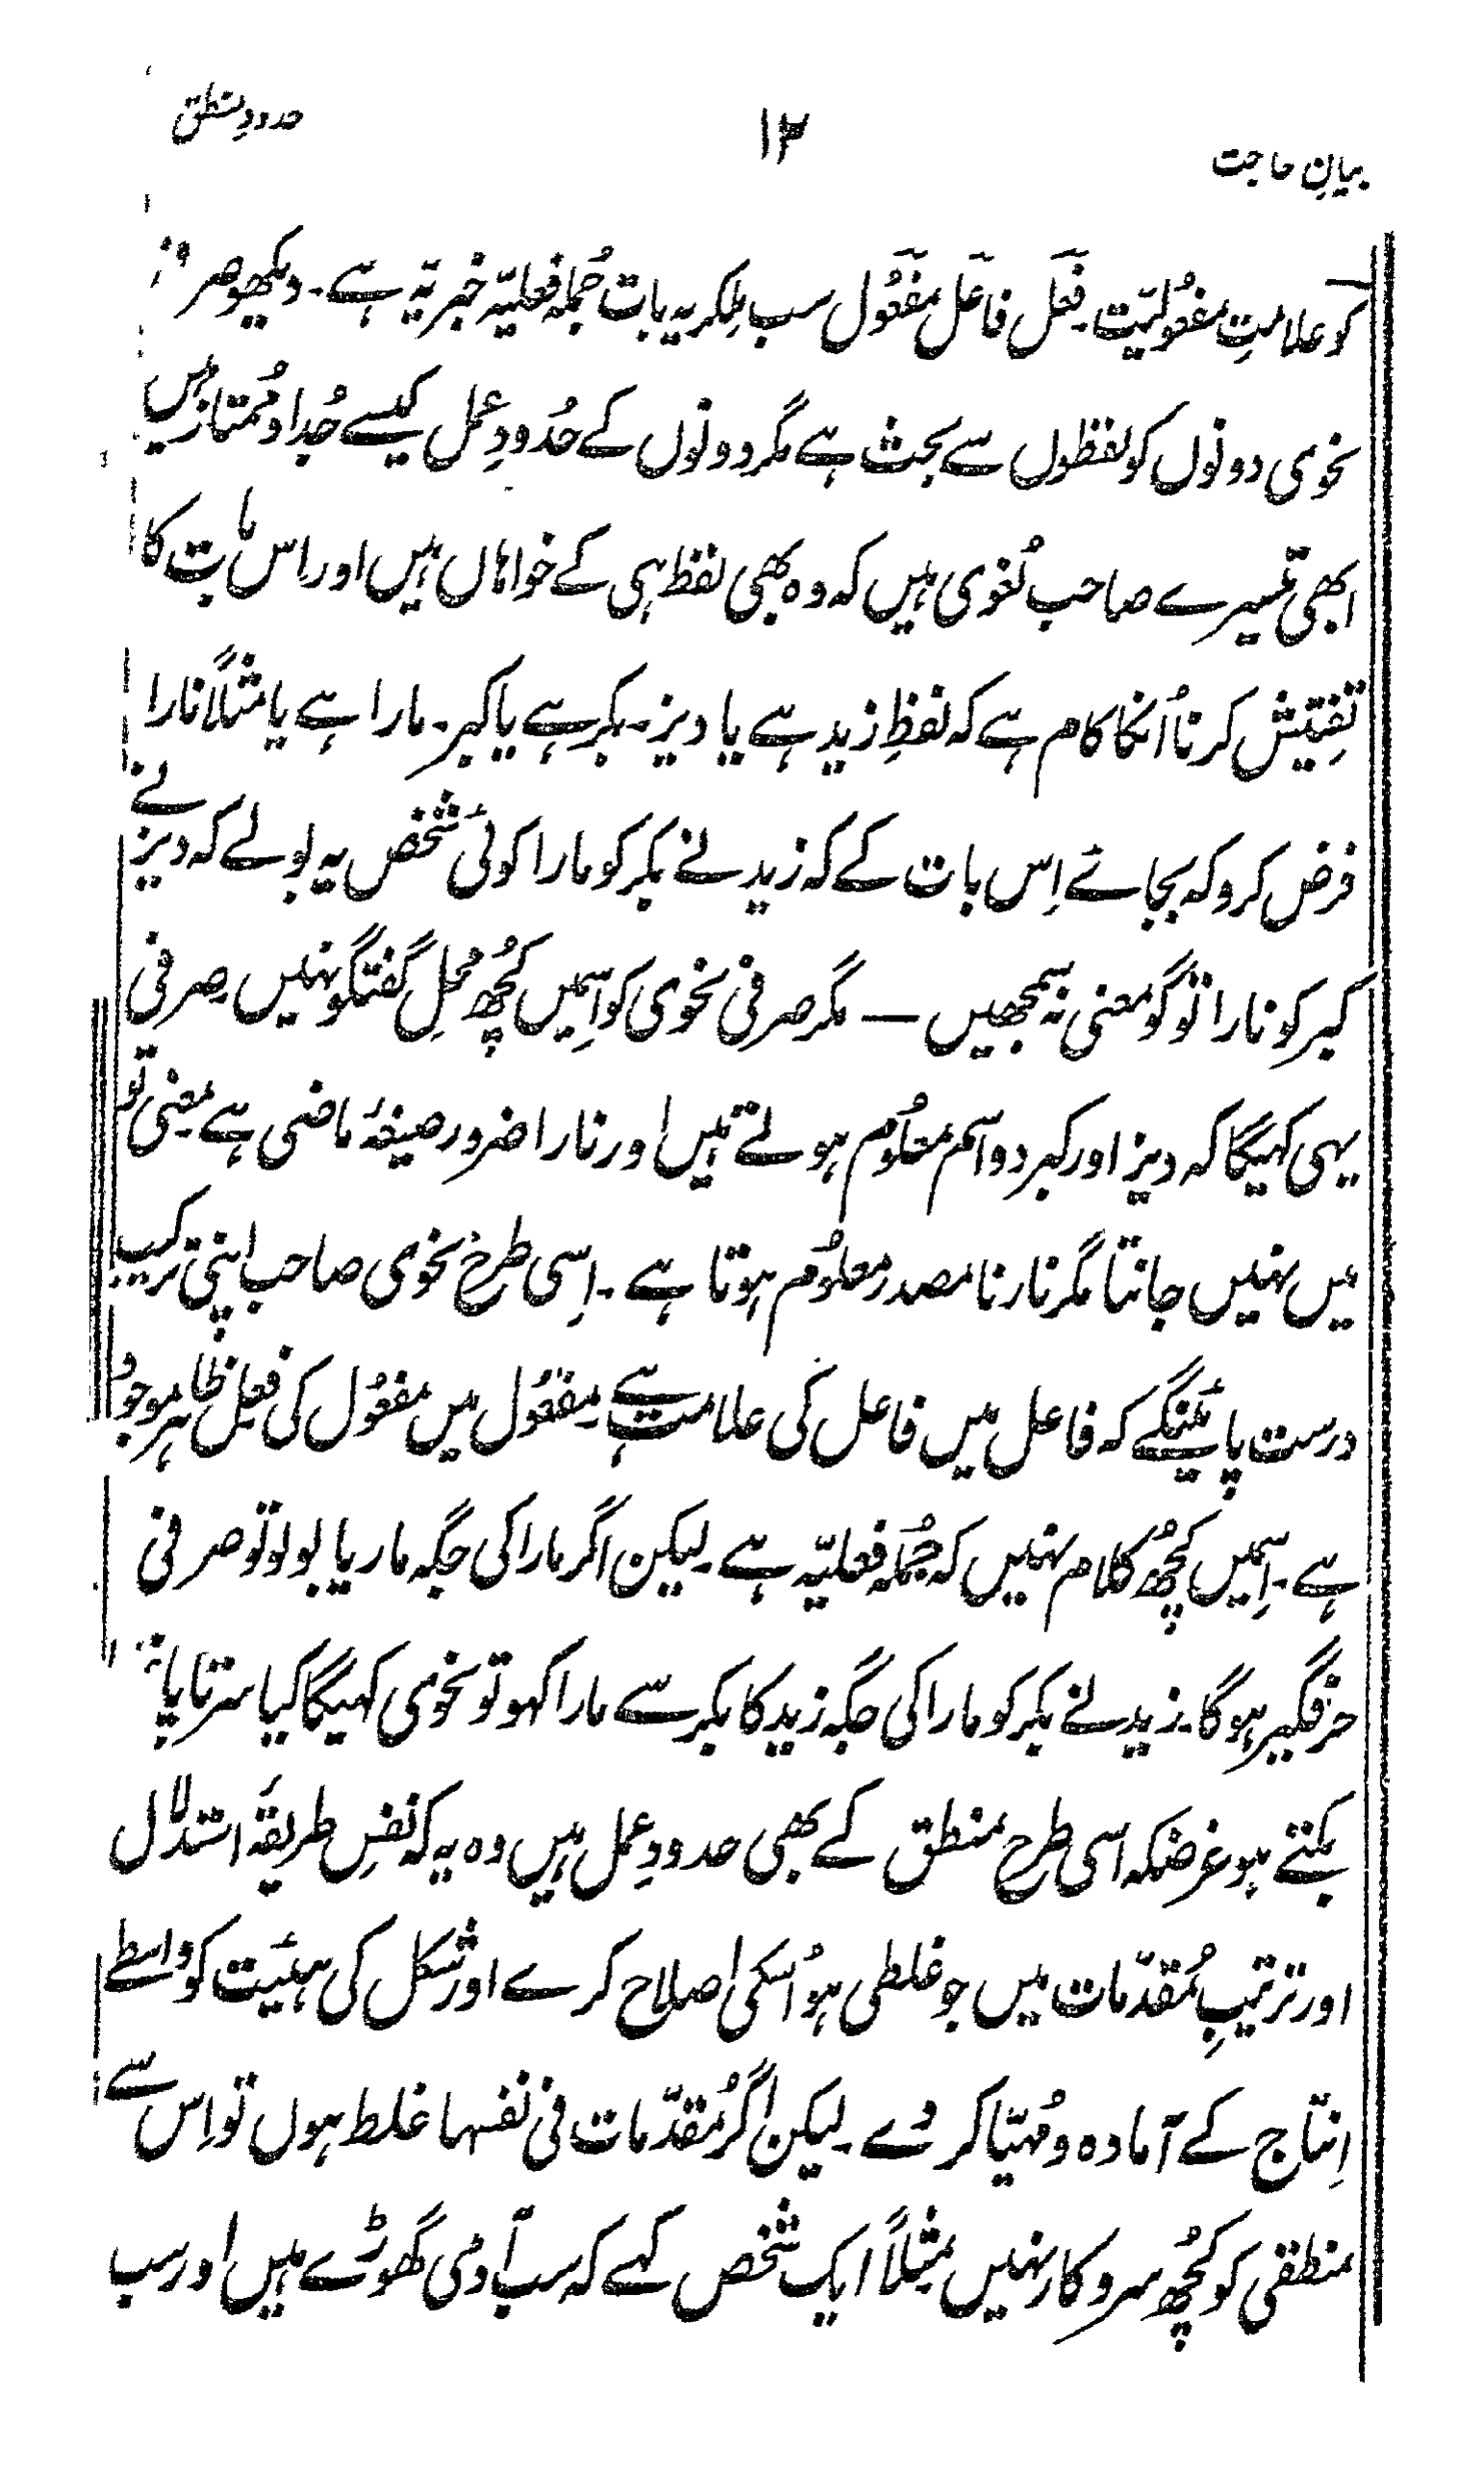 بیانِ حاجت
۱۲
حدودِ منطق
کو علامتِ مفعُولیّت۔ فِعَل فاعَل مفعُول سب مِلکر یہ بات جُملہ فعلیّہ خبریّہ ہے۔ دیکھو صرفی
نحوی دونوں کو لفظوں سے بحث ہے مگر دونوں کے حُدودِ عمل کیسے جُدا و مُمتاز ہیں
ابھی تیسرے صاحب لُغوی ہیں کہ وہ بھی لفظ ہی کے خواہاں ہیں اور اِس بات کا
تفتیش کرنا اُنکا کام ہے کہ لفظِ زید ہے یا دیز۔ بکر ہے یا کبر۔ مارا ہے یا مثلاً نارا
فرض کرو کہ بجائے اِس بات کے کہ زید نے بکر کو مارا کوئی شخص یہ بولے کہ دیز نے
کبر کو نارا تو گو معنی نہ سمجھیں — مگر صرفی نحوی کو اِسمیں کُچھ محلِ گفتگو نہیں صِرفی
یہی کہیگا کہ دیز اور کبر دو اسم معلُوم ہوتے ہیں اور نارا ضرور صیغۂ ماضی ہے معنی تو
میں نہیں جانتا مگر نارنا مصدر معلُوم ہوتا ہے۔ اِسی طرح نحوی صاحب اپنی ترکیب
درست پائینگے کہ فاعل میں فاعل کی علامت ہے مفعُول میں مفعُول کی فعل ظاہر موجود
ہے۔ اِسمیں کُچھ کلام نہیں کہ جُملہ فعلیّہ ہے۔ لیکن اگر مارا کی جگہ ماریا بولو تو صرفی
حرفگیر ہوگا۔ زید نے بکر کو مارا کی جگہ زید کا بکر سے مارا کہو تو نحوی کہیگا کیا سرتاپا
بکتے ہو غرضکہ اسی طرح منطق کے بھی حدودِ عمل ہیں وہ یہ کہ نفسِ طریقۂ استدلال
اور ترتیبِ مُقدّمات میں جو غلطی ہو اُسکی اِصلاح کرے اور شکل کی ہیئت کو واسطے
اِنتاج کے آمادہ و مُہیّا کر دے۔ لیکن اگر مُقدّمات فی نفسہا غلط ہوں تو اِس سے
منطقی کو کُچھ سروکار نہیں مثلاً ایک شخص کہے کہ سب آدمی گھوڑے ہیں اور سب